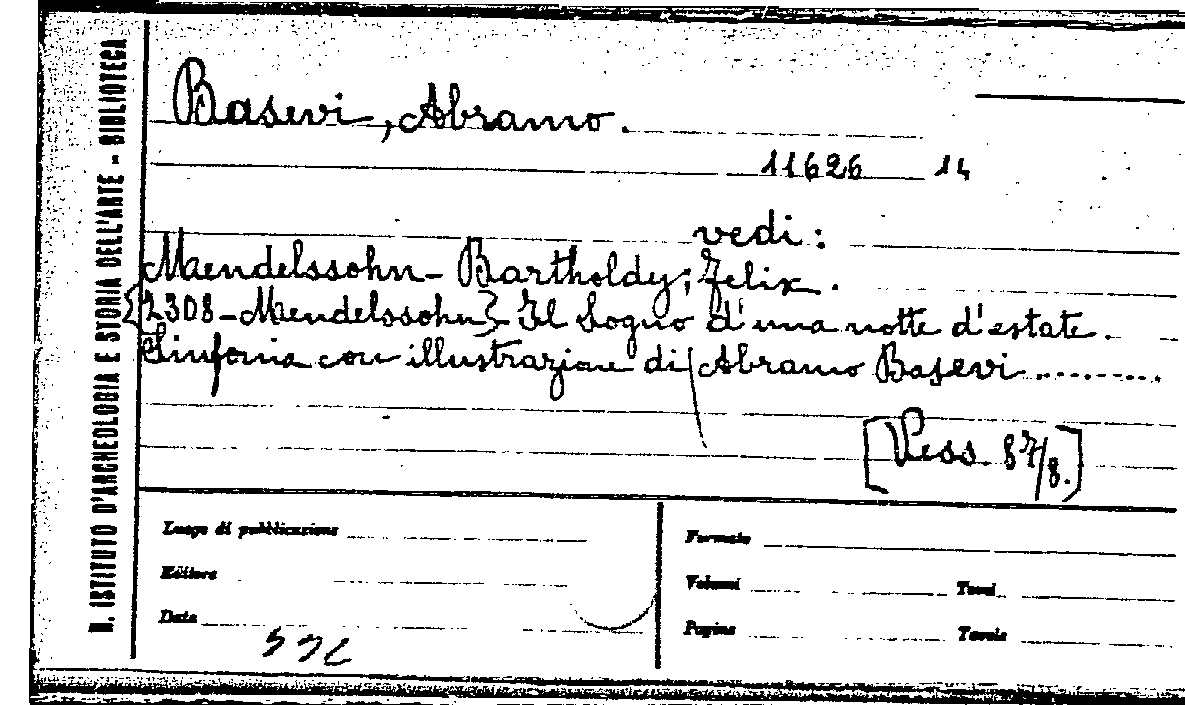 R. ISTITUTO D'ARCHEOLOGIA E STORIA DELL'ARTE - BIBLIOTECA
Basevi, Abramo.
11626 14
vedi:
Mendelssohn-Bartholdy, Felix.
{2308-Mendelssohn} Il Sogno d'una notte d'estate.
Sinfonia con illustrazione di Abramo Basevi ..........
[Vess 87/8.]
Luogo di pubblicazione
Editore
Data
Formato
Volumi Tomi
Pagine Tavole